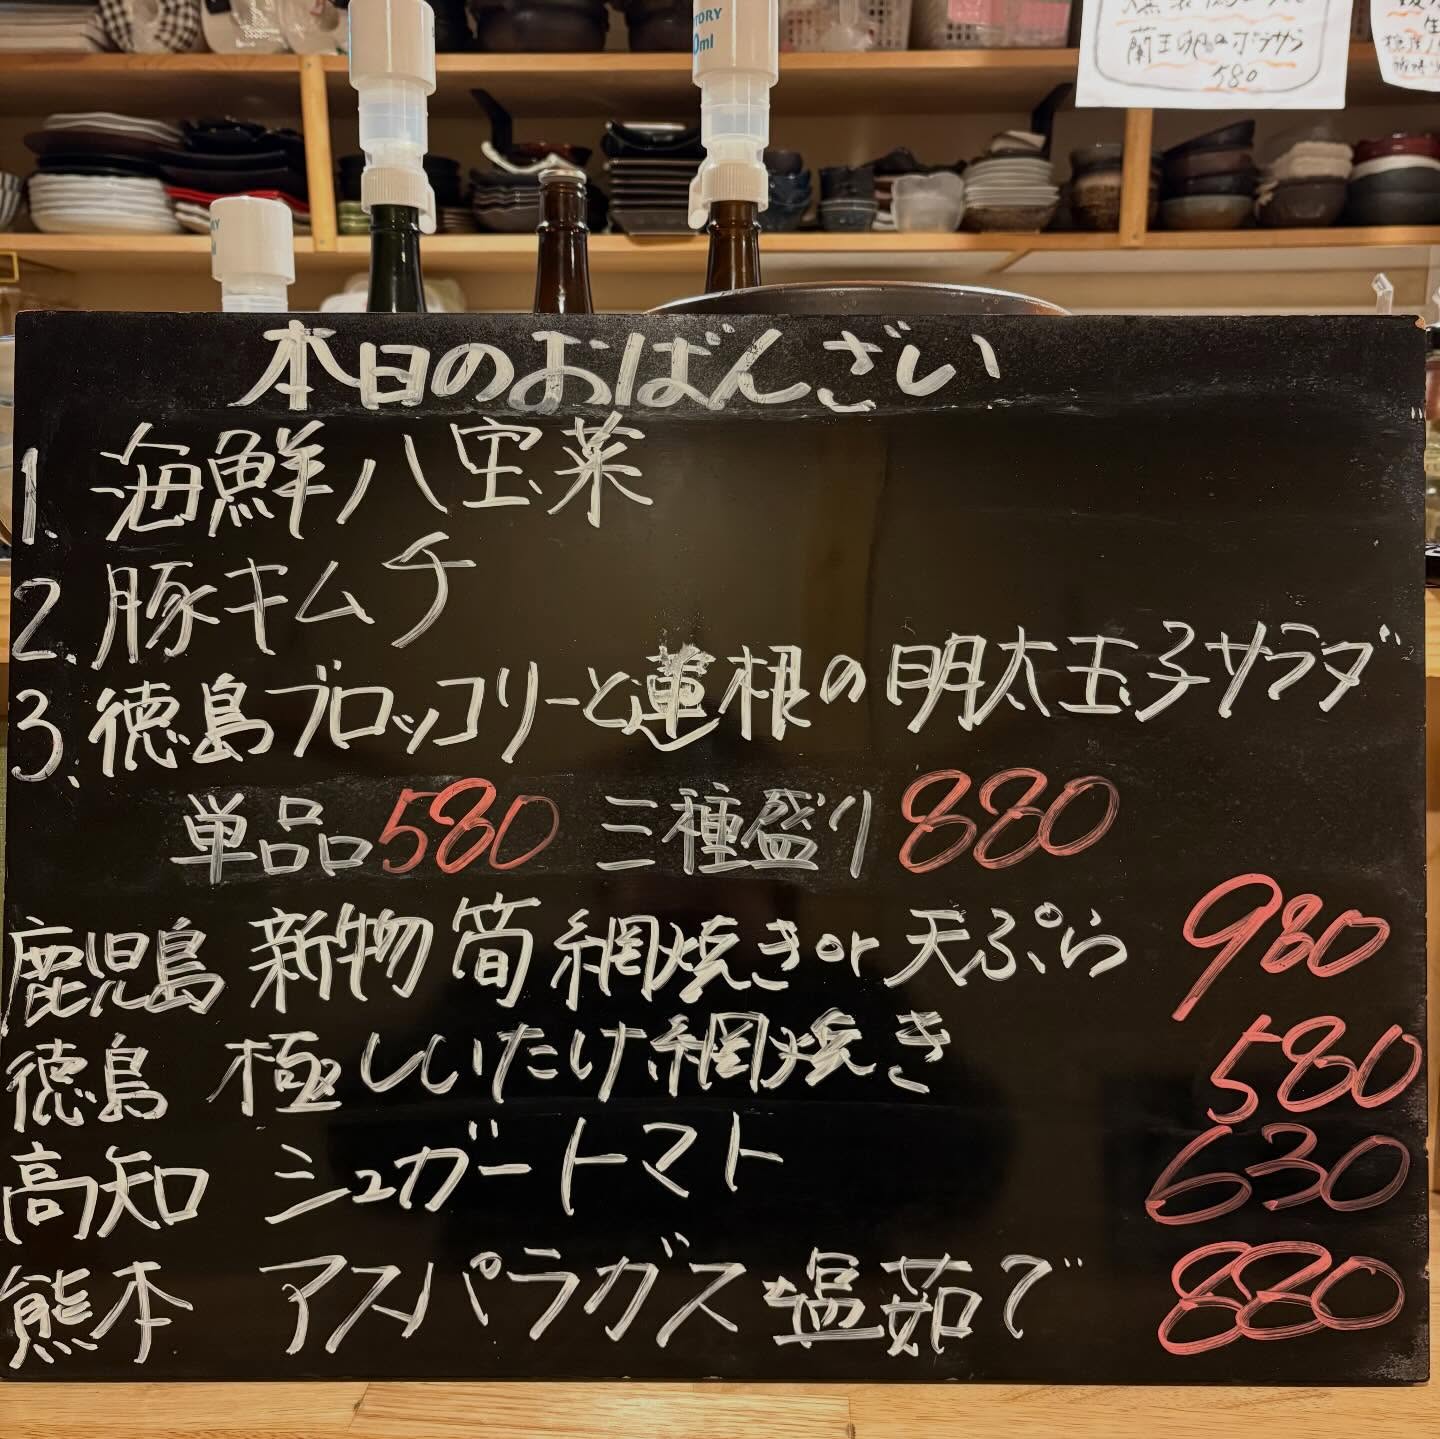 蘭王卵のポテサラ
580
本日のおばんざい
1. 海鮮八宝菜
2. 豚キムチ
3. 徳島ブロッコリーと蓮根の明太玉子サラダ
単品580 三種盛り880
鹿児島 新物筍網焼きor天ぷら 980
徳島 極しいたけ網焼き 580
高知 シュガートマト 630
熊本 アスパラガス塩茹で 880